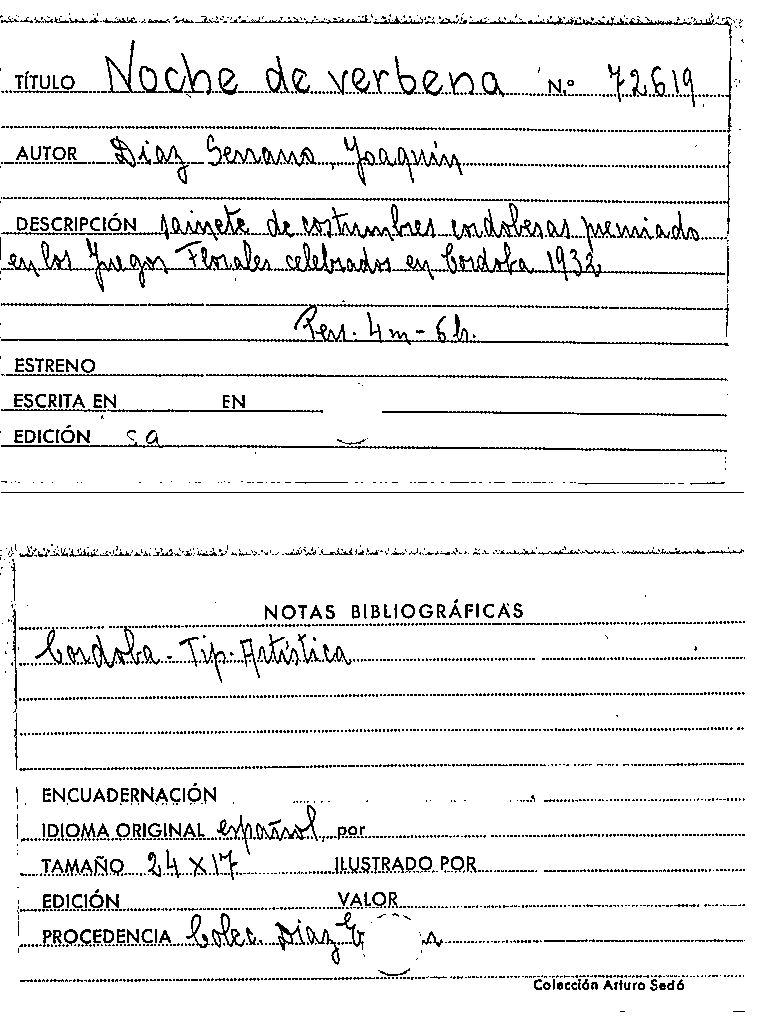 TÍTULO Noche de verbena N.º 72619
AUTOR Diaz Serrano, Joaquín
DESCRIPCIÓN sainete de costumbres cordobesas premiado
en los Juegos Florales celebrados en Cordoba 1932
Pers. 4 m - 6 h.
ESTRENO
ESCRITA EN EN
EDICIÓN s a
NOTAS BIBLIOGRÁFICAS
Cordoba - Tip. Artística
ENCUADERNACIÓN
IDIOMA ORIGINAL español, por
TAMAÑO 24 X 17 ILUSTRADO POR
EDICIÓN VALOR
PROCEDENCIA Colec. Diaz
Colección Arturo Sedó